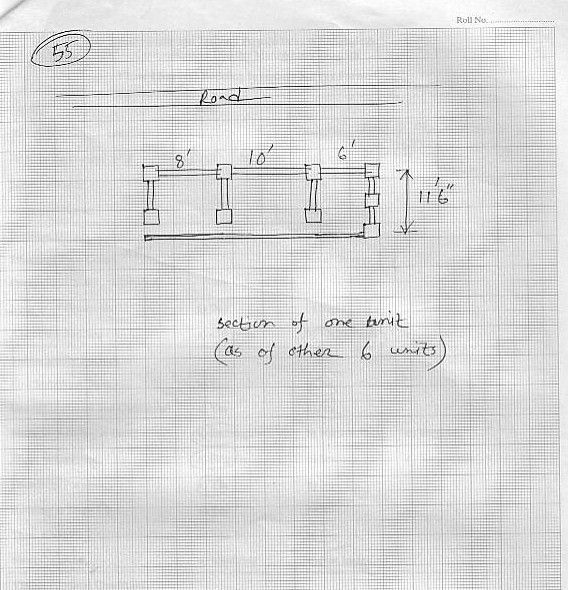 Roll No.
55
Road
8' 10' 6'
11'6"
section of one unit
(as of other 6 units)